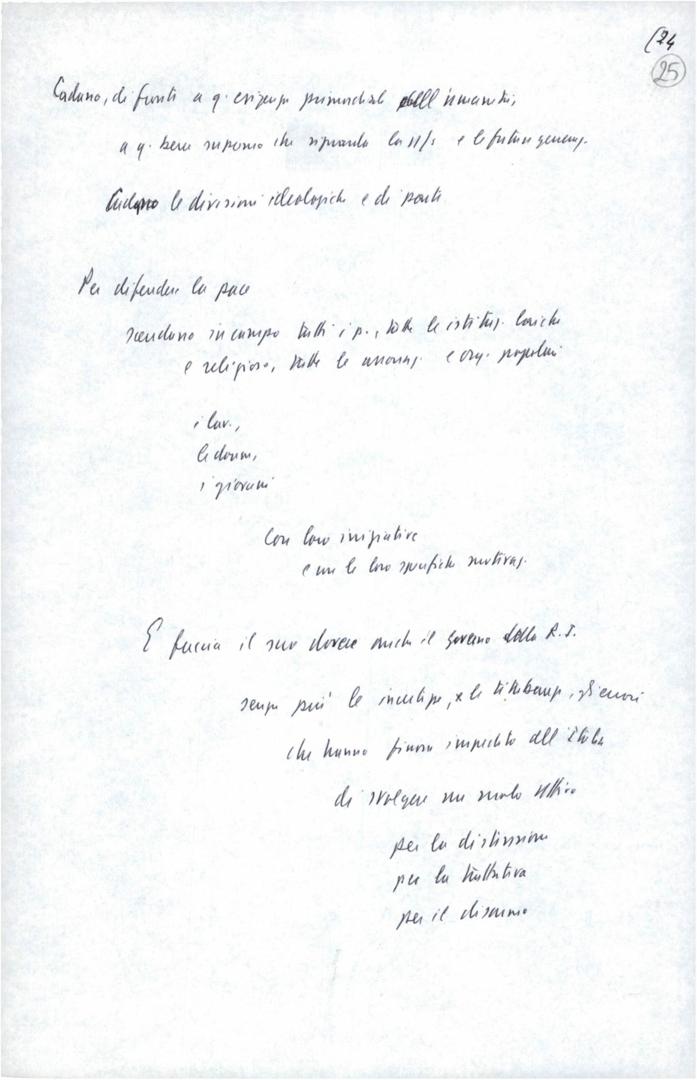 (24
25
Cadano, di fronte a q. esigenza primordiale dell'umanità,
a q. bene supremo che riguarda la ns/s e le future generaz.
Cadano le divisioni ideologiche e di parte
Per difendere la pace
scendano in campo tutti i p., tutte le istituz. laiche
e religiose, tutte le associaz. e org. popolari
i lav.,
le donne,
i giovani
con loro iniziative
e con le loro specifiche motivaz.
E faccia il suo dovere anche il governo della R.I.
senza più le incertezze, e le titubanze, gli errori
che hanno finora impedito all'Italia
di svolgere un ruolo attivo
per la distensione
per la trattativa
per il disarmo